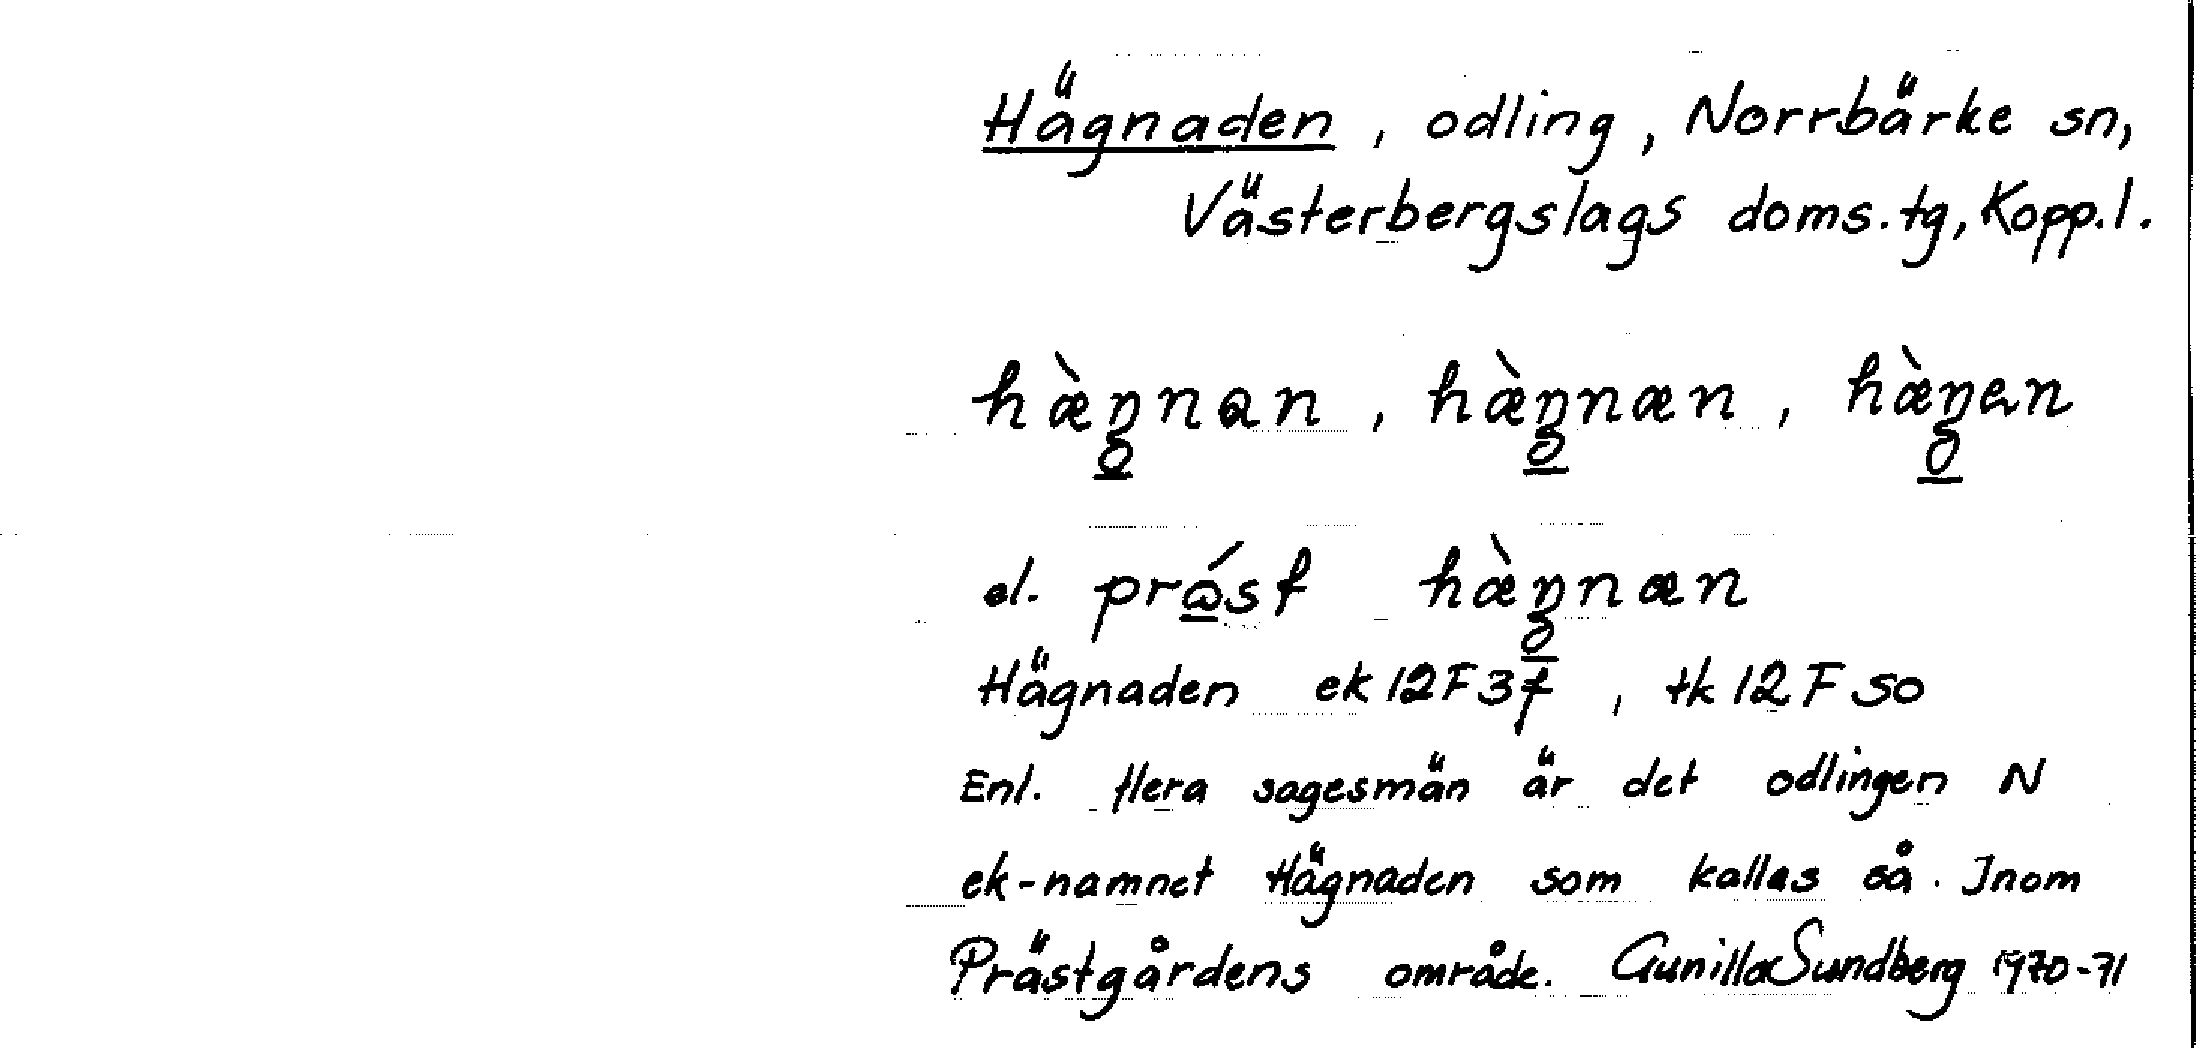 Hägnaden, odling, Norrbärke sn,
Västerbergslags doms.tg, Kopp.l.
hæ̀ŋnan, hæ̀ŋnæn, hæ̀ŋən
el. hæ̀ŋnæn
Hägnaden ek 12F37, tk 12F SO
Enl. flera sagesmän är det odlingen N
ek-namnet Hägnaden som kallas så. Inom
Prästgårdens område. Gunilla Sundberg 1970-71